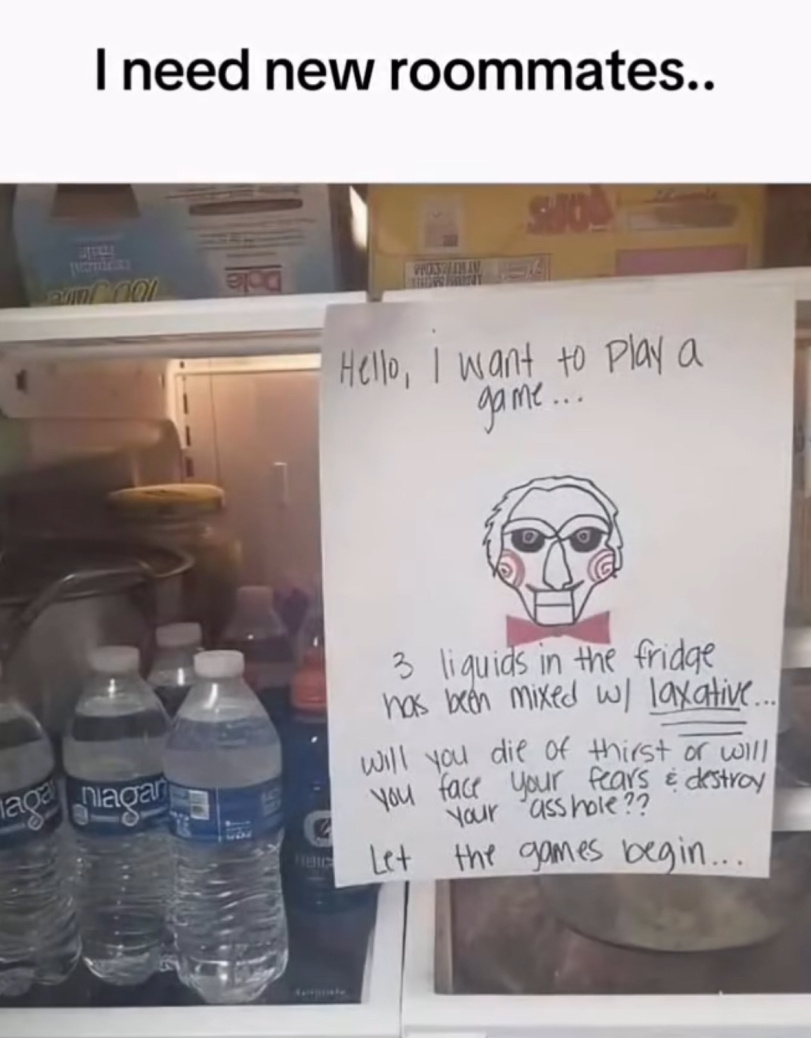 I need new roommates..
100% Juice
Dole
Hello, i want to play a
game...
3 liquids in the fridge
has been mixed w/ laxative...
will you die of thirst or will
you face your fears & destroy
your asshole??
Let the games begin...
niagar